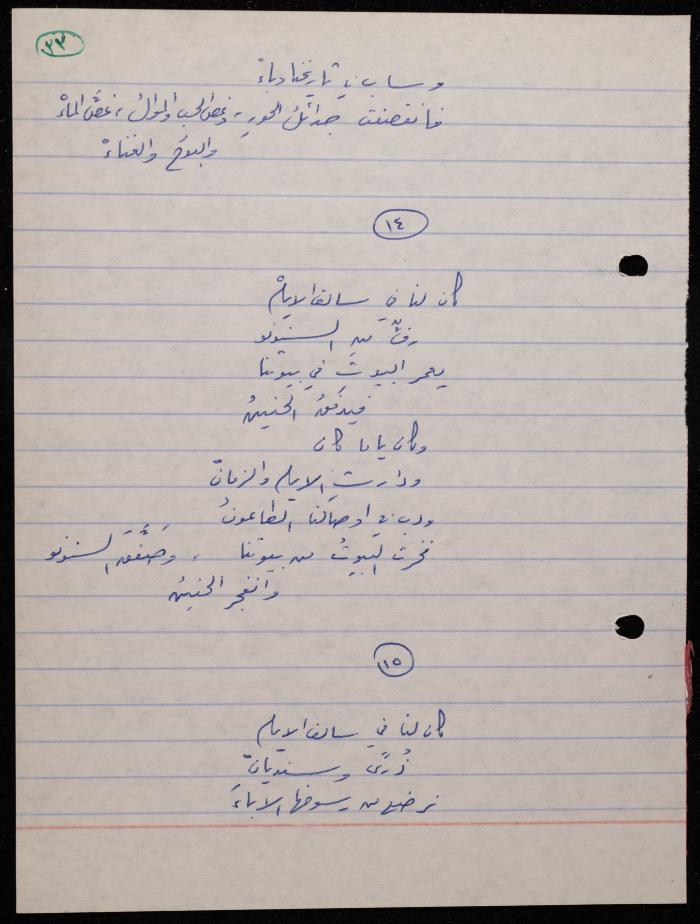 ٣٣
وساب في تاريخنا وباءْ
فانقصفت جدائلُ الحورِ، وغصّ الحب والموالُ، غصَّ الماءْ
والبوحُ والغناءْ
١٤
كان لنا في سالف الايامْ
رفٌّ من السنونو
يعمر البيوتَ في بيوتنا
فيدفُقُ الحنينُ
وكان ياما كان
ودارت الايام والزمانْ
ودب في اوصالنا الطاعونُ
فخرت البيوتُ من بيوتنا ، وصَفَّقَ السنونو
وانفجر الحنينُ
١٥
كان لنا في سالف الايام
ذُرىً وسنديانْ
نرضع من رسوخها الاباءَ